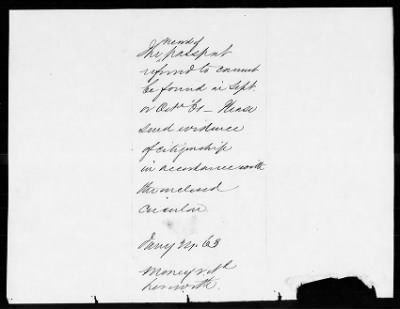 Record of
The passport
referred to cannot
be found in Sept.
or Octr 61 - Please
send evidence
of citizenship
in accordance with
the inclosed
Circular.
Jany 24. 63
Money &
herewith.